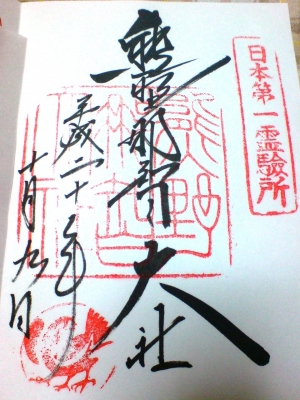 日本第一霊驗所
熊野那智大社
平成二十年
十月九日